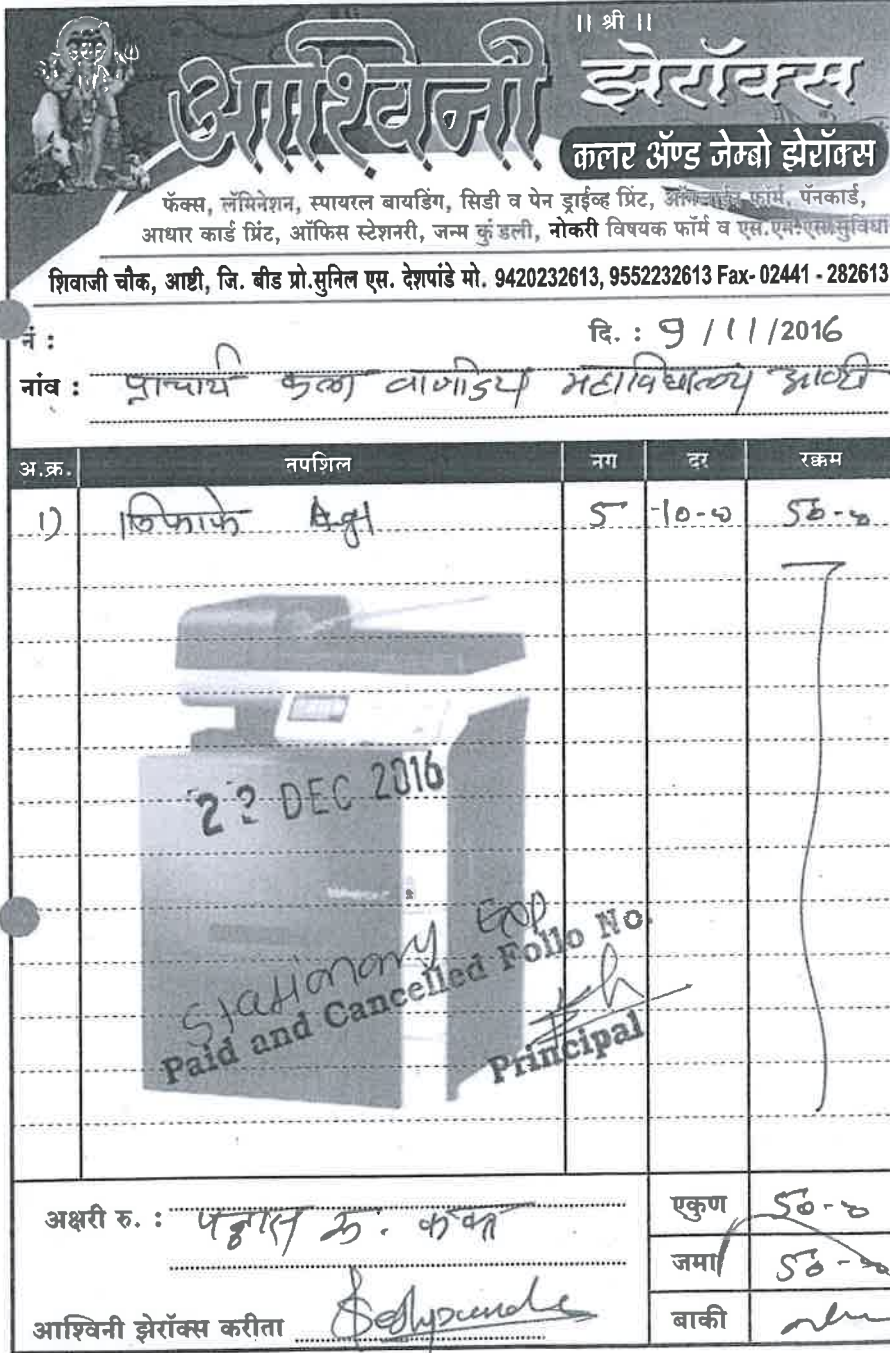 || श्री ||
आश्विनी झेरॉक्स
कलर ॲण्ड जेम्बो झेरॉक्स
फॅक्स, लॅमिनेशन, स्पायरल बायडिंग, सिडी व पेन ड्राईव्ह प्रिंट, ऑनलाईन फॉर्म, पॅनकार्ड,
आधार कार्ड प्रिंट, ऑफिस स्टेशनरी, जन्म कुंडली, नोकरी विषयक फॉर्म व एस.एम.एस.सुविधा
शिवाजी चौक, आष्टी, जि. बीड प्रो.सुनिल एस. देशपांडे मो. 9420232613, 9552232613 Fax- 02441 - 282613
नं :
दि. : 9 / 11 / 2016
नांव : प्राचार्य कला वाणिज्य महाविद्यालय आष्टी
अ.क्र. तपशिल नग दर रक्कम
1) लिफाफे 5 10-00 50-00
22 DEC 2016
Stationary Exp
Paid and Cancelled Follo No.
Principal
अक्षरी रु. : पन्नास रु. फक्त
एकुण 50-00
जमा 50-00
आश्विनी झेरॉक्स करीता
बाकी